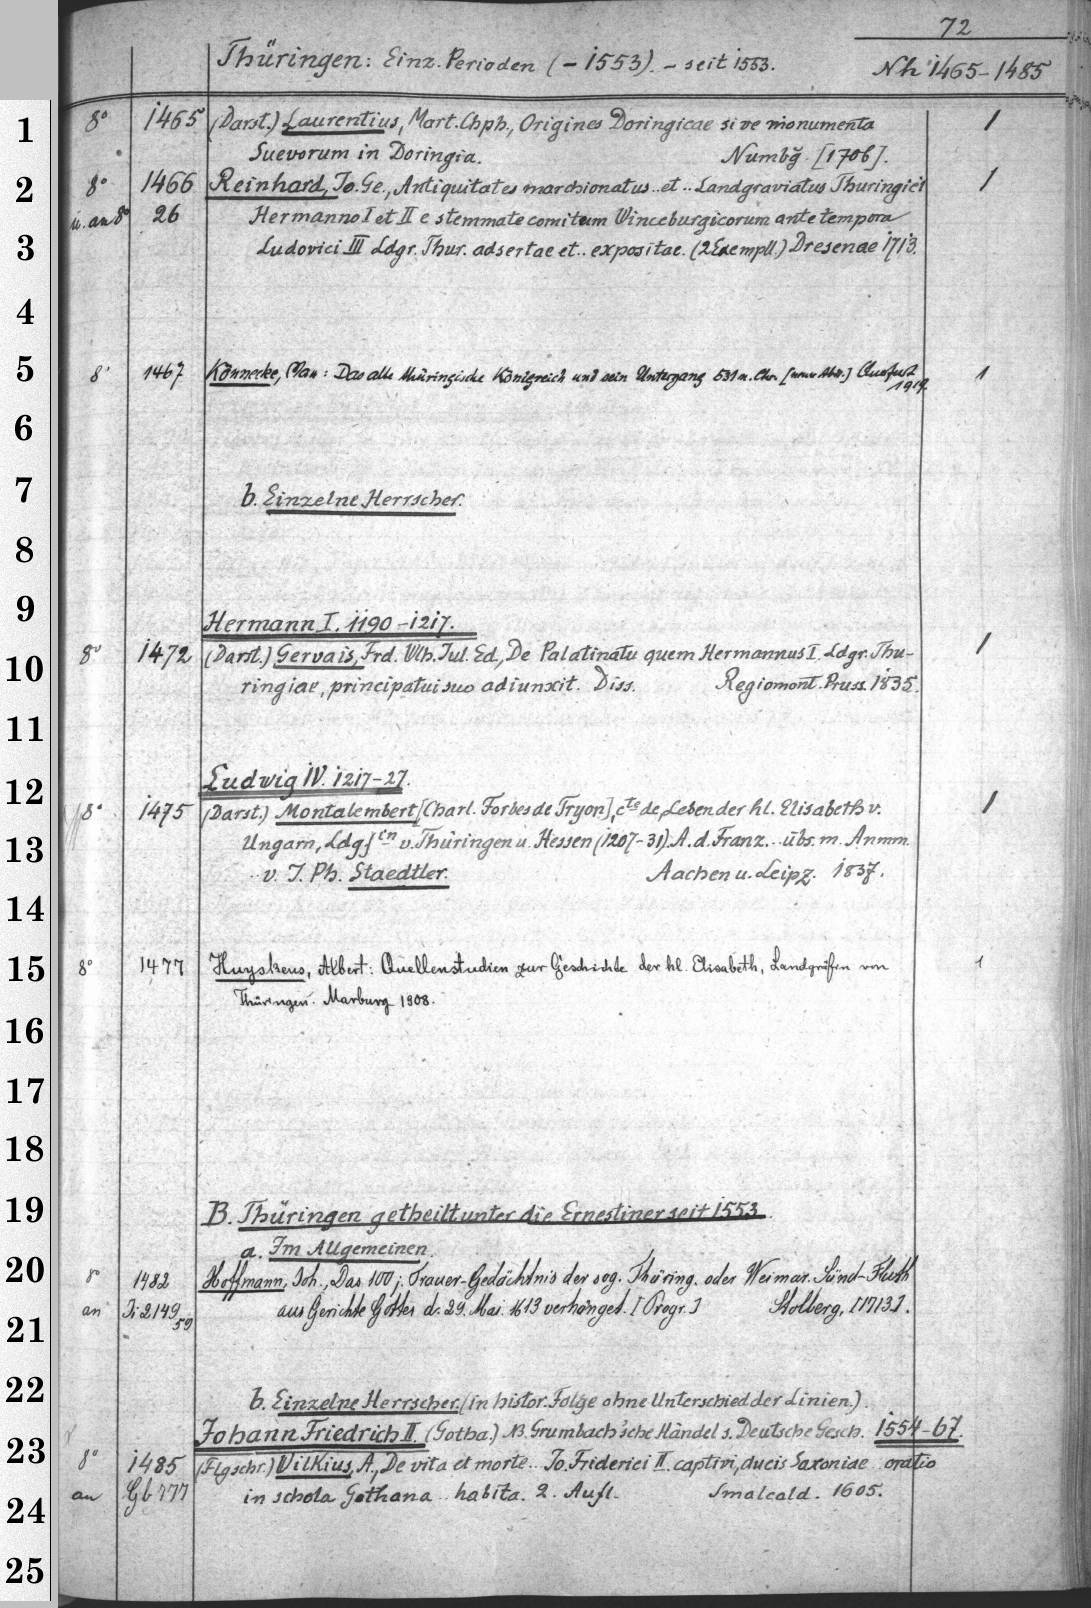 72
Thüringen: Einz. Perioden (-1553). - seit 1553. Nh 1465-1485
1 8° 1465 (Darst.) Laurentius, Mart. Chph., Origines Doringicae sive monumenta 1
Suevorum in Doringia. Numbg [1706].
2 8° 1466 Reinhard, Jo. Ge., Antiquitates marchionatus.. et.. Landgraviatus Thuringici 1
u. an 8° 26 Hermanno I et II e stemmate comitum Vinceburgicorum ante tempora
3 Ludovici III Ldgr. Thur. adsertae et.. expositae. (2 Exempll.) Dresenae 1713.
4
5 8° 1467 Könnecke, Max: Das alte thüringische Königreich und sein Untergang 531 n. Chr. Querfurt 1
6
7 b. Einzelne Herrscher.
8
9 Hermann I. 1190-1217.
10 8° 1472 (Darst.) Gervais, Frd. Wlh. Jul. Ed., De Palatinatu quem Hermannus I. Ldgr. Thu- 1
ringiae, principatui suo adiunxit. Diss. Regiomont. Pruss. 1835.
11
12 Ludwig IV. 1217-27.
8° 1475 (Darst.) Montalembert [Charl. Forbes de Tryon], cte de, Leben der hl. Elisabeth v. 1
13 Ungarn, Ldgfen v. Thüringen u. Hessen (1207-31). A. d. Franz... übs. m. Anmm.
.. v. J. Ph. Staedtler. Aachen u. Leipz. 1837.
14
15 8° 1477 Huyskens, Albert: Quellenstudien zur Geschichte der hl. Elisabeth, Landgräfin von 1
Thüringen. Marburg 1908.
16
17
18
19 B. Thüringen getheilt unter die Ernestiner seit 1553.
a. Im Allgemeinen.
20 8° 1482 Hoffmann, Joh., Das 100 j. Trauer-Gedächtnis der sog. Thüring. oder Weimar. Sünd-Fluth
an 2149 59 aus Gerichte Gottes d. 29. Mai 1613 verhänget. [Progr.] Stolberg, [1713].
21
22 b. Einzelne Herrscher. (in histor. Folge ohne Unterschied der Linien.).
Johann Friedrich II. (Gotha.) NB. Grumbach'sche Händel s. Deutsche Gesch. 1554-67.
23 8° 1485 (Flgschr.) Wilkius, A., De vita et morte.. Jo. Friderici II. captivi, ducis Saxoniae.. oratio
an Gb 777 in schola Gothana.. habita. 2. Aufl. Smalcald. 1605.
24
25